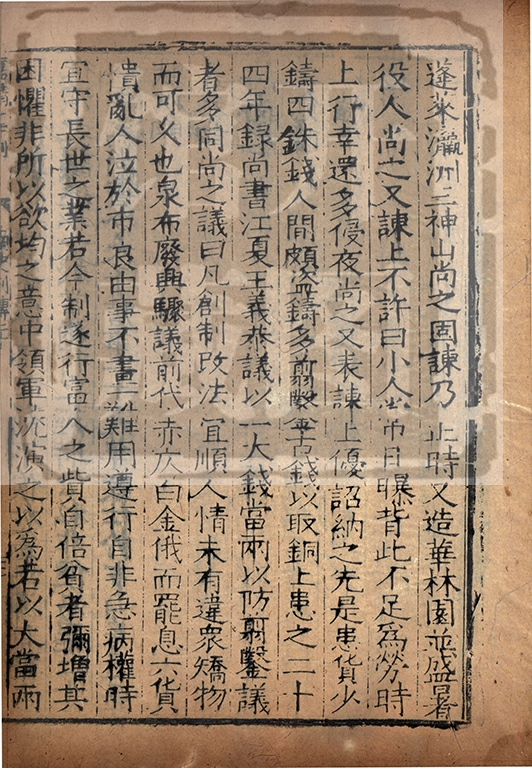 蓬萊瀛洲三神山尚之固諫乃止時又造華林園並盛暑
役人尚之又諫上不許曰小人常自曝背此不足爲勞時
上行幸還多侵夜尚之又表諫上優詔納之先是患貨少
鑄四銖錢人間頗盜鑄多翦鑿古錢以取銅上患之二十
四年録尚書江夏王義恭議以一大錢當兩以防翦鑿議
者多同尚之議曰凡創制改法宜順人情未有違衆矯物
而可久也泉布廢興驟議前代赤仄白金俄而罷息六貨
憒亂人泣於市良由事不畫一難用遵行自非急病權時
宜守長世之業若今制遂行富人之貲自倍貧者彌增其
困懼非所以欲均之意中領軍沈演之以爲若以大當兩